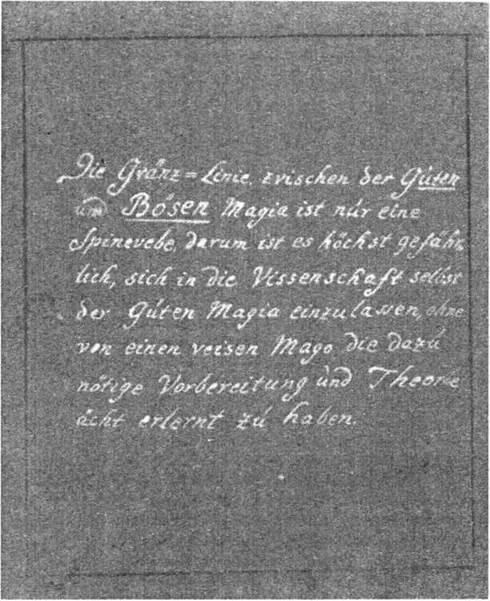 Die Gränz=Linie, zvischen der Gúten
und Bösen Magia ist núr eine
Spinevebe, darum ist es höchst gefähr
lich, sich in die Vissenschaft selbst
der Gúten Magia einzulassen, ohne
von einen veisen Mago die dazú
nötige Vorbereitung únd Theorie
ächt erlernt zú haben.